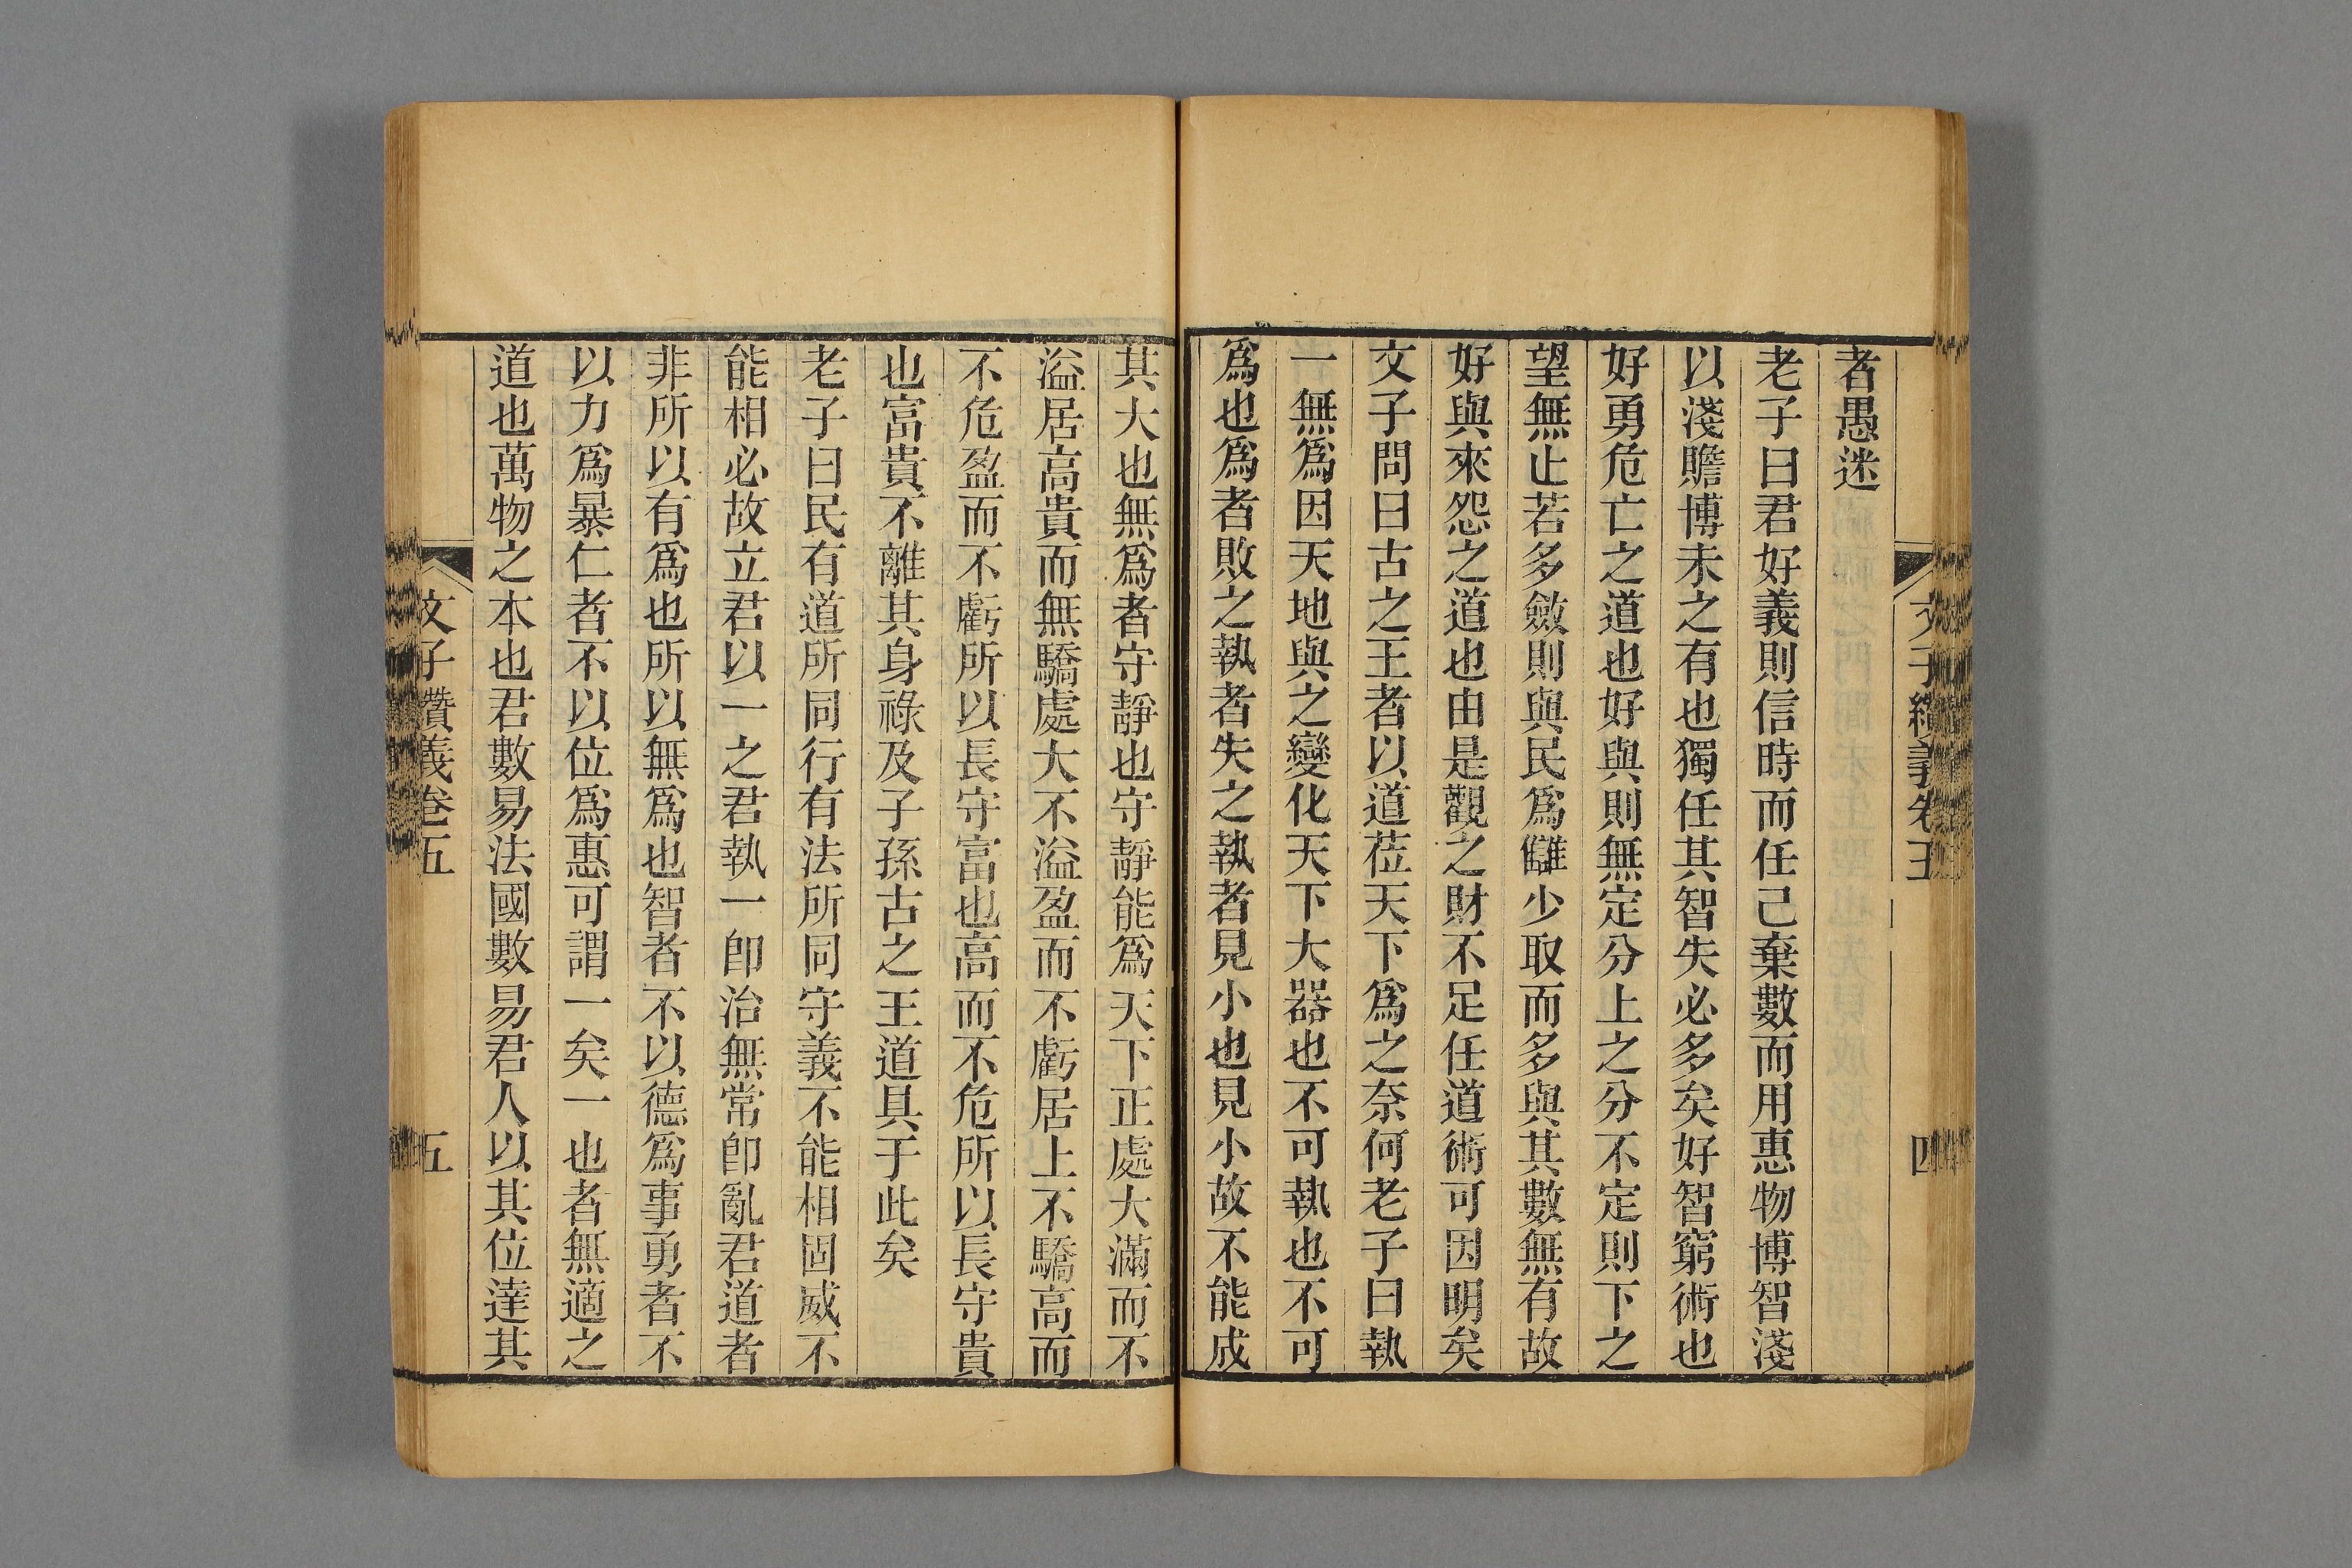 文子纘義卷五
四
者愚迷
老子曰君好義則信時而任己棄數而用惠物博智淺
以淺贍博未之有也獨任其智失必多矣好智窮術也
好勇危亡之道也好與則無定分上之分不定則下之
望無止若多斂則與民爲讎少取而多與其數無有故
好與來怨之道也由是觀之財不足任道術可因明矣
文子問曰古之王者以道莅天下爲之奈何老子曰執
一無爲因天地與之變化天下大器也不可執也不可
爲也爲者敗之執者失之執者見小也見小故不能成
其大也無爲者守靜也守靜能爲天下正處大滿而不
溢居高貴而無驕處大不溢盈而不虧居上不驕高而
不危盈而不虧所以長守富也高而不危所以長守貴
也富貴不離其身祿及子孫古之王道具于此矣
老子曰民有道所同行有法所同守義不能相固威不
能相必故立君以一之君執一卽治無常卽亂君道者
非所以有爲也所以無爲也智者不以德爲事勇者不
以力爲暴仁者不以位爲惠可謂一矣一也者無適之
道也萬物之本也君數易法國數易君人以其位達其
文子纘義卷五
五